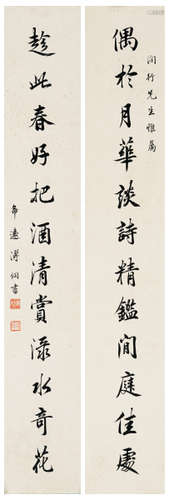 偶於月華談詩精鑑閒庭佳處
润行先生雅屬
趁此春好把酒清賞淥水奇花
希遠溥侗書